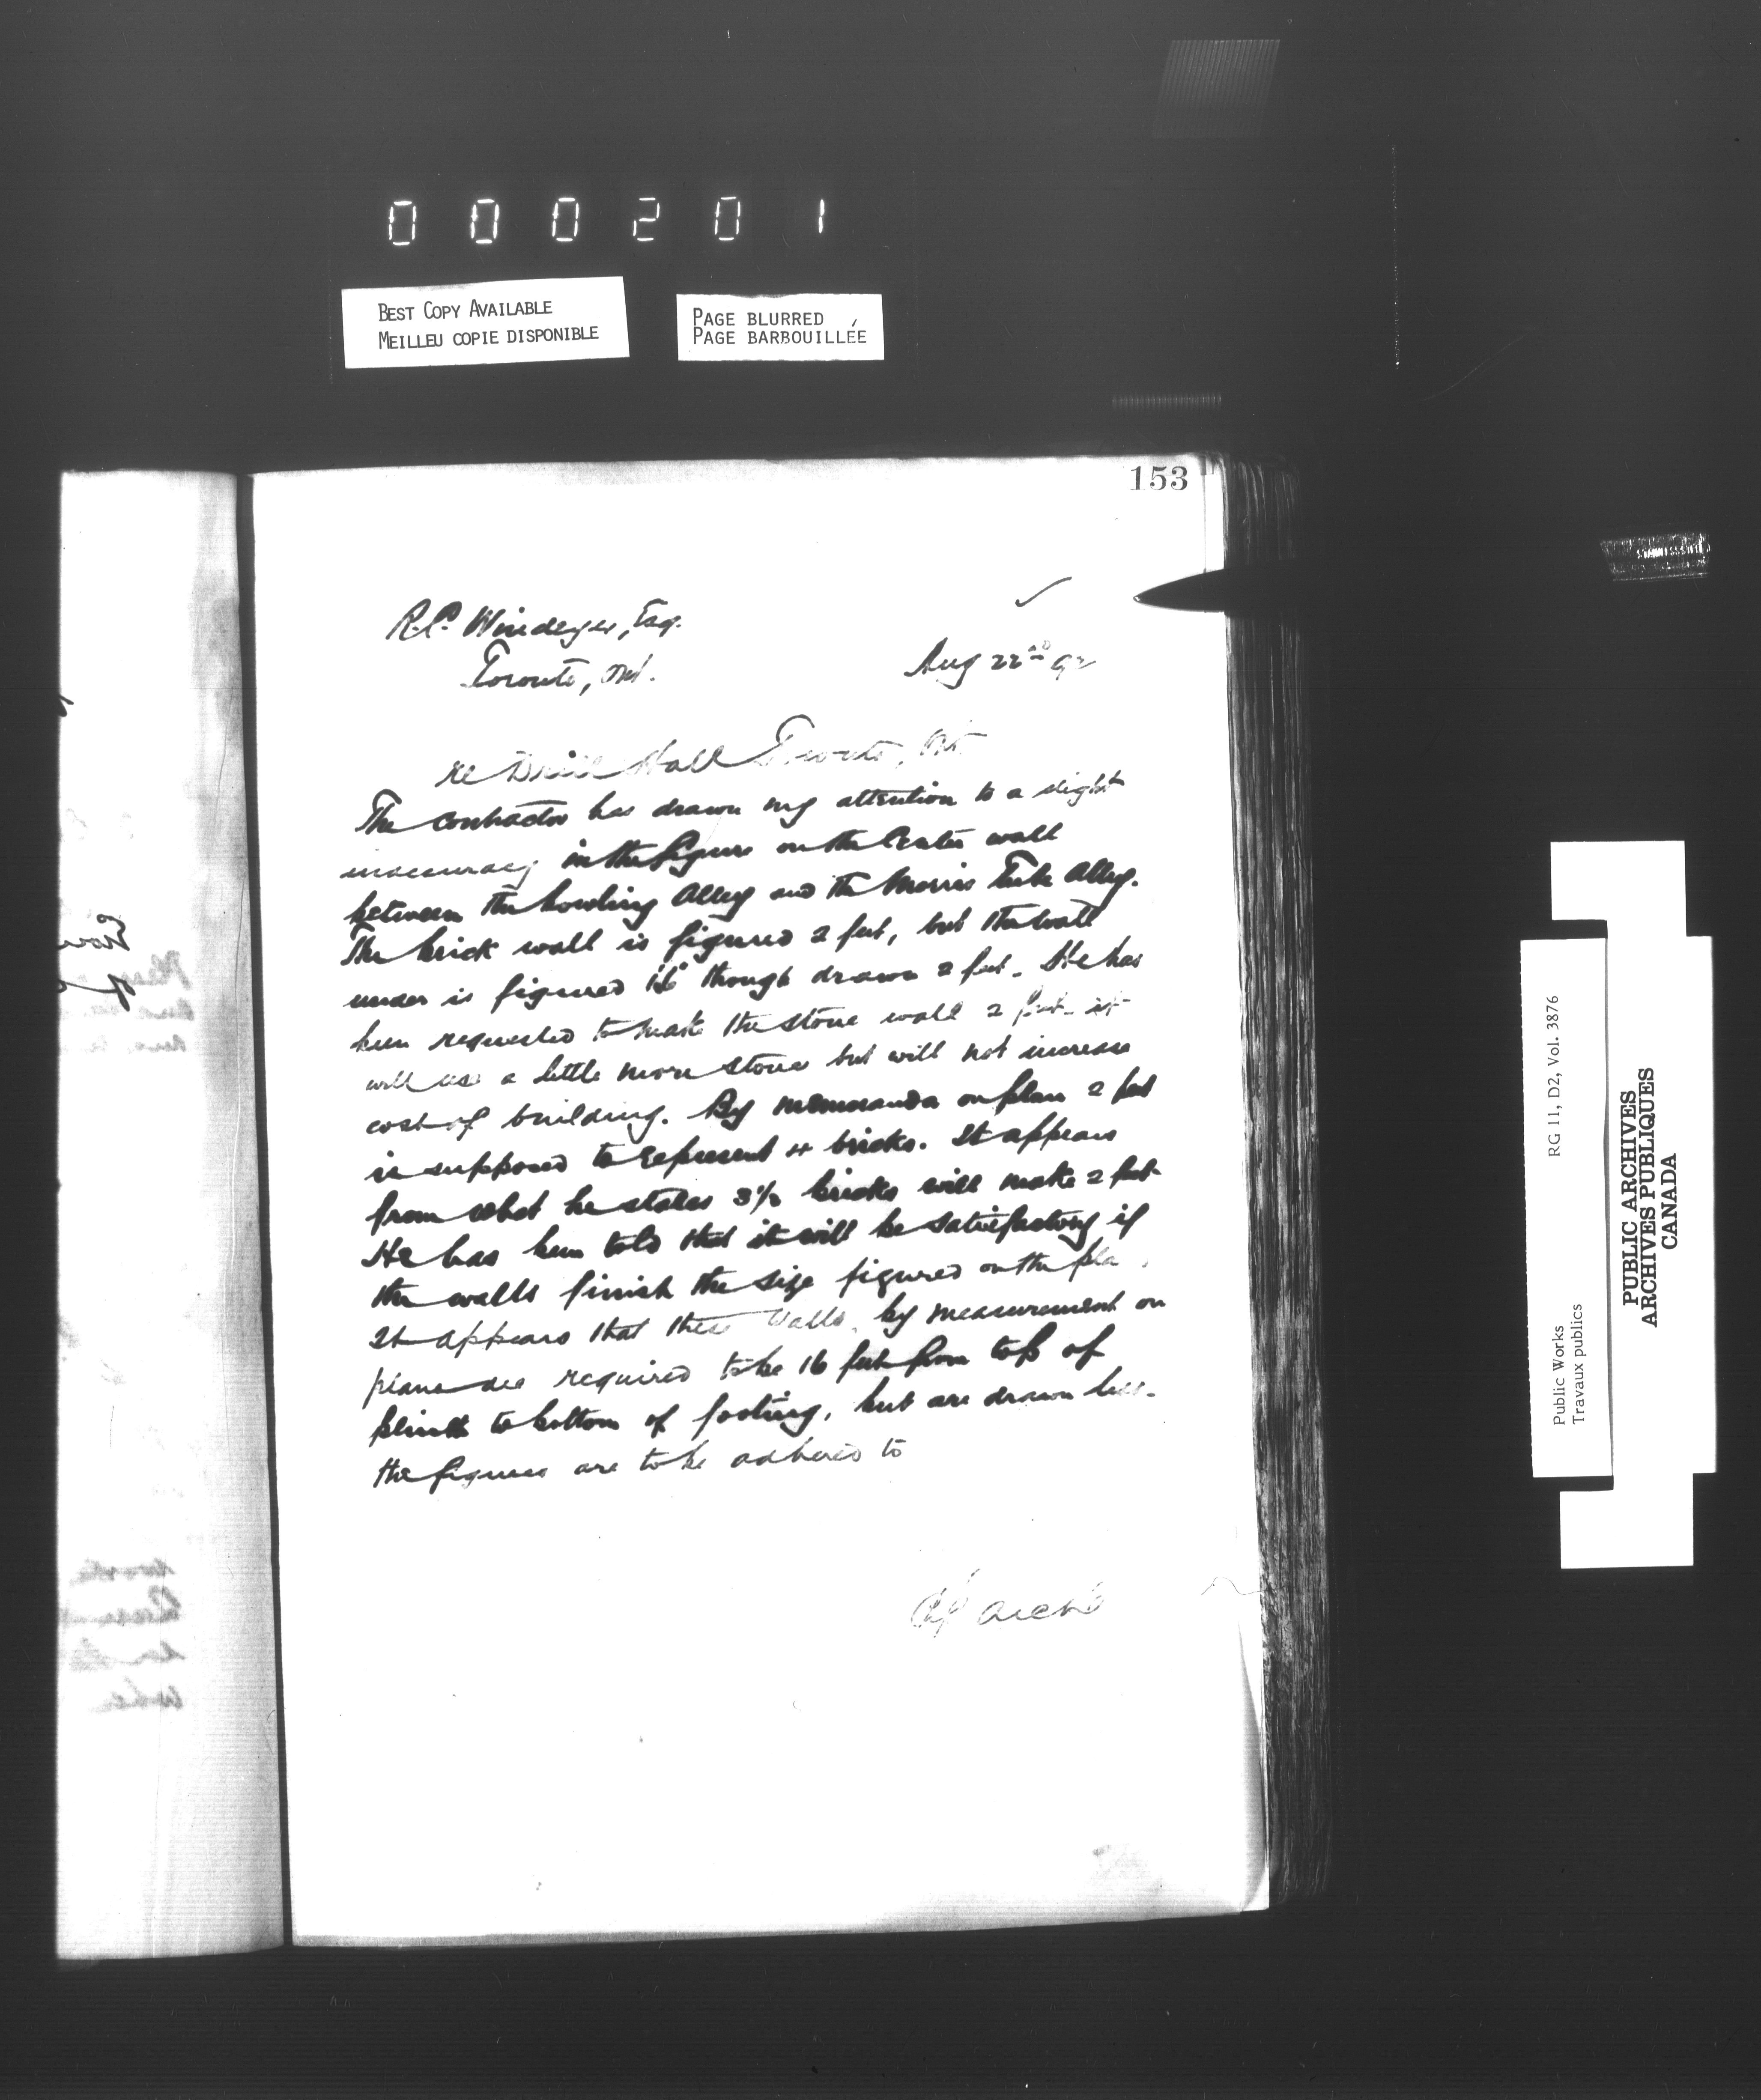 000201
BEST COPY AVAILABLE
MEILLEU COPIE DISPONIBLE
PAGE BLURRED
PAGE BARBOUILLÉE
153
R.P. Windeyer, Esq.
Toronto, Ont.
Aug 22nd 92
re Drill Hall Toronto, Ont
The contractor has drawn my attention to a slight
inaccuracy in the figure on the Center wall
between the bowling Alley and the Morris Tube Alley.
The brick wall is figured 2 feet, but the wall
under is figured though drawn 2 feet. He has
been requested to make the stone wall 2 feet it
will use a little more stone but will not increase
cost of building. By memoranda on plan 2 feet
is supposed to represent 4 bricks. It appears
from what he states 3½ bricks will make 2 feet
He has been told that it will be satisfactory if
the walls finish the size figured on the pla
It appears that these Walls, by measurement on
plans are required to be 16 feet from top of
plinth to bottom of footing, but are drawn less.
the figures are to be adhered to
Arch
RG 11, D2, Vol. 3876
Public Works
Travaux publics
PUBLIC ARCHIVES
ARCHIVES PUBLIQUES
CANADA